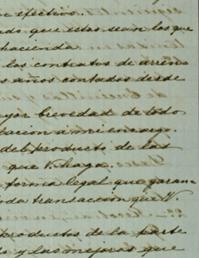 en efectivo.
edo que estas sean los que
hacienda
los contratos de arrien
s años contados desde
ayor brevedad de todo
bacion a mi encargo.
del producto de las
que V. haga.
forma legal que garan
oda transacion que V.
productos de la parte
s y las mejoras que